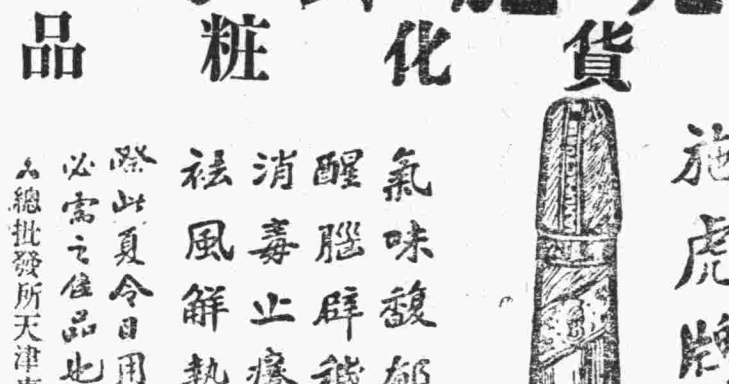 貨化粧品
施虎牌
氣味馥郁
醒腦辟穢
消毒止癢
祛風解熱
際此夏令日用
必需之佳品也
總批發所天津